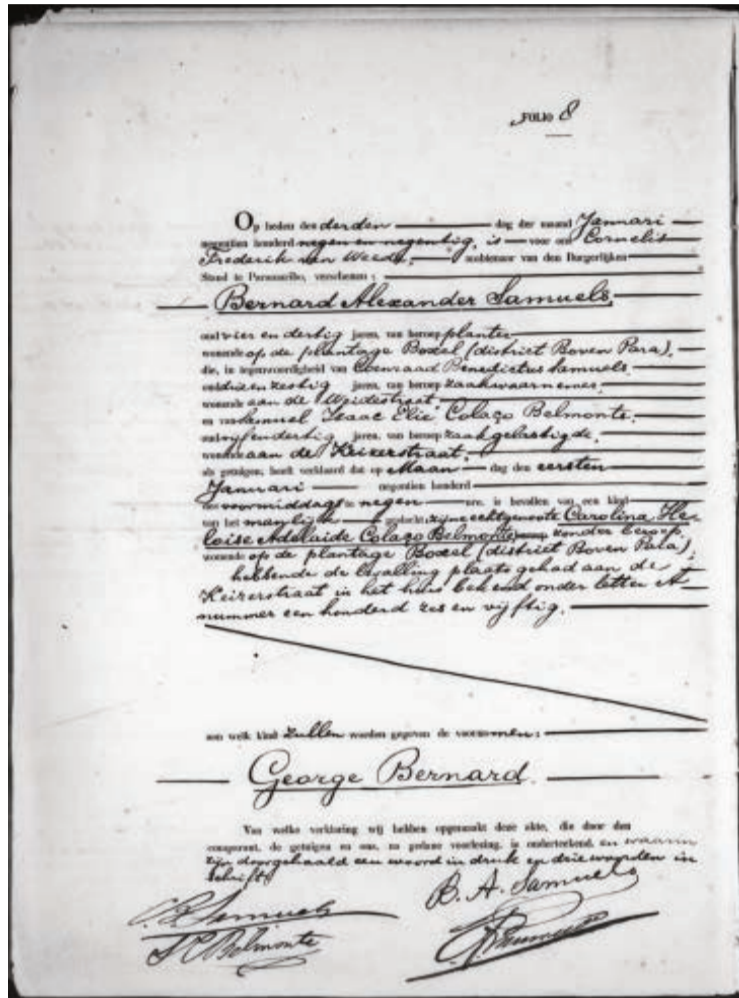 FOLIO 8
Op heden den derden dag der maand Januari
negentien honderd negen en negentig, is voor ons Cornelis
Frederik van Weede, ambtenaar van den Burgerlijken
Stand te Paramaribo, verschenen:
Bernard Alexander Samuels,
oud vier en dertig jaren, van beroep planter
wonende op de plantage Boxel (district Boven Para),
die, in tegenwoordigheid van Coenraad Benedictus Samuels
oud zestig jaren, van beroep zaakwaarnemer
wonende aan de Weidestraat
en van Isaac Elie Colaço Belmonte,
oud vyfendertig jaren, van beroep zaakgelastigde,
wonende aan de Keizerstraat,
als getuigen, heeft verklaard dat op Maan dag den eersten
Januari negentien honderd
des voormiddags te negen ure, is bevallen van een kind
van het manlijk geslacht zijne echtgenoote Carolina He-
loise Adelaide Colaço Belmonte zonder beroep,
wonende op de plantage Boxel (district Boven Para),
hebbende de bevalling plaats gehad aan de
Keizerstraat in het huis bekend onder letter A
nummer een honderd zes en vijftig.
aan welk kind zullen worden gegeven de voornamen:
George Bernard.
Van welke verklaring wij hebben opgemaakt deze akte, die door den
comparant, de getuigen en ons, na gedane voorlezing, is onderteekend, en waarin
zijn doorgehaald een woord in druk en drie woorden in
schrift
B. A. Samuels
C. B. Samuels
Belmonte